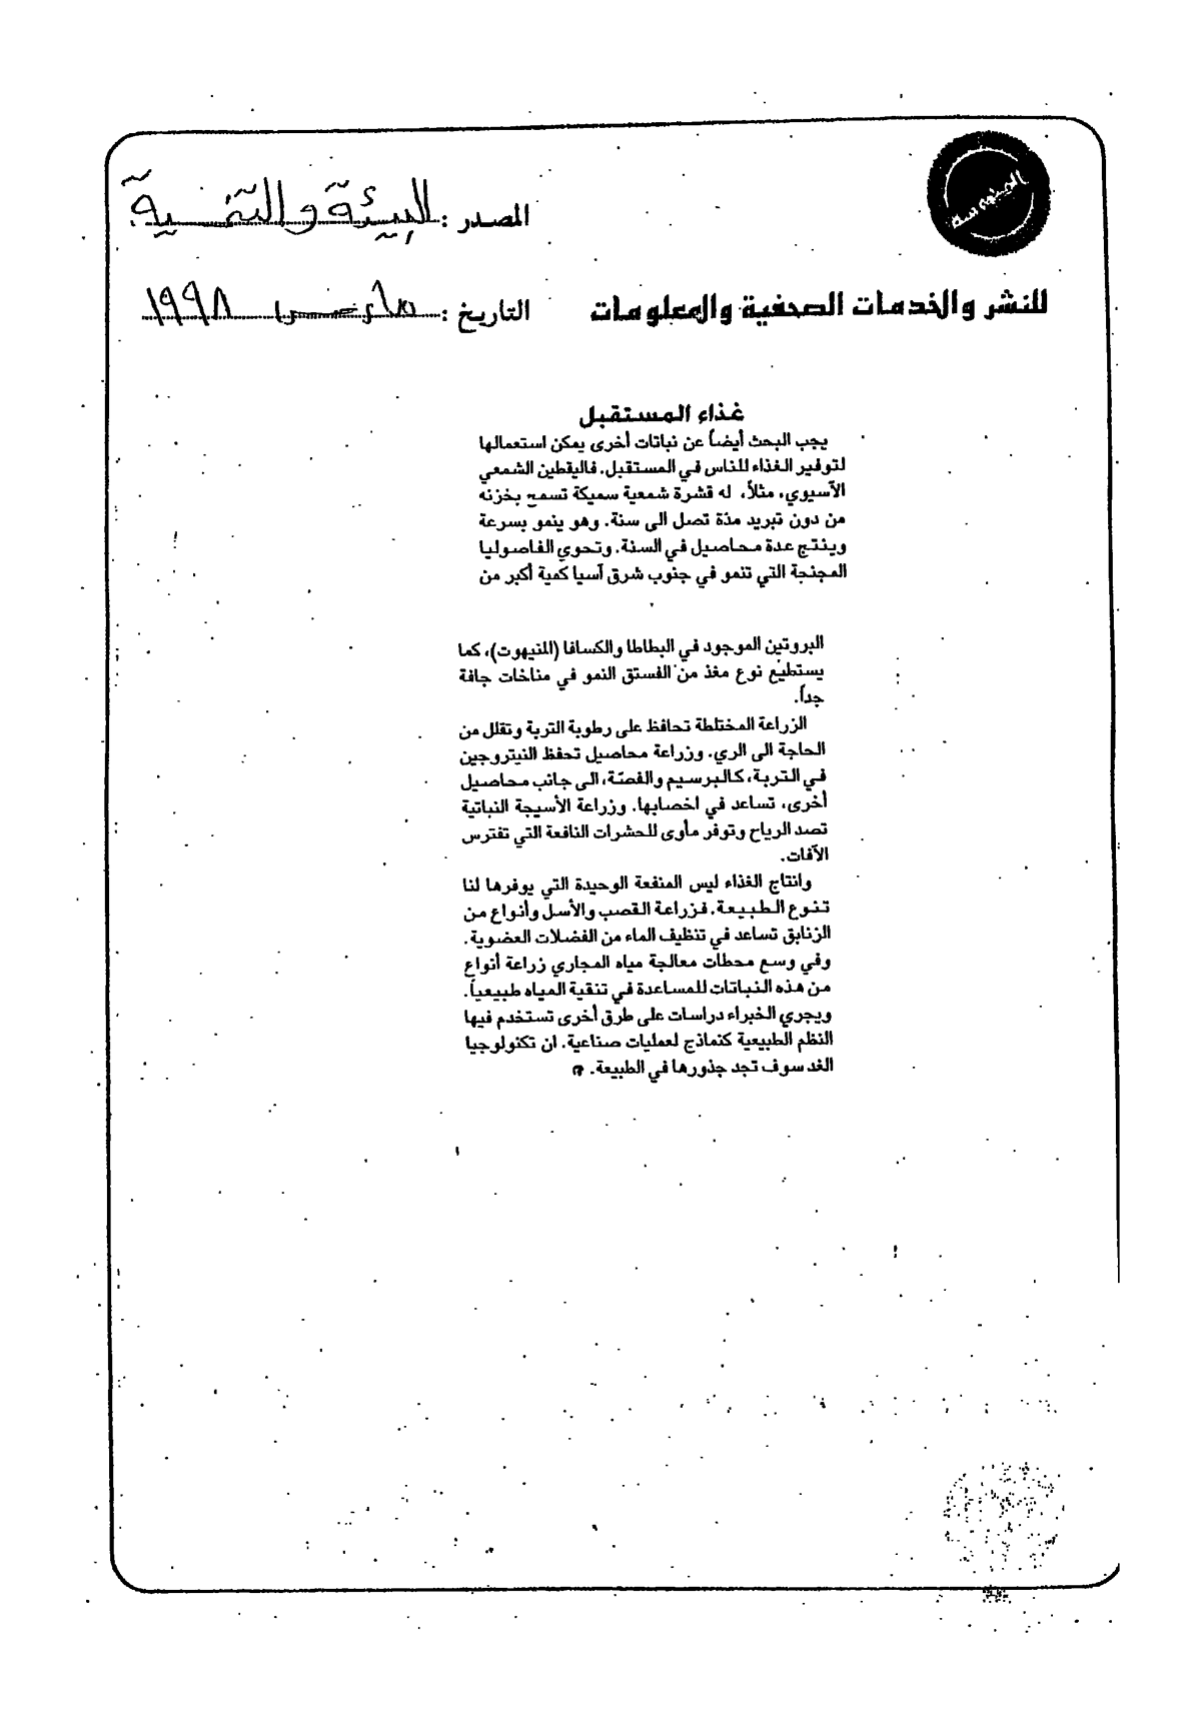 المصدر : البيئة والتنمية
للنشر والخدمات الصحفية والمعلومات
التاريخ : مارس ١٩٩٨
غذاء المستقبل
يجب البحث أيضاً عن نباتات أخرى يمكن استعمالها
لتوفير الغذاء للناس في المستقبل. فاليقطين الشمعي
الآسيوي، مثلاً، له قشرة شمعية سميكة تسمح بخزنه
من دون تبريد مدّة تصل الى سنة. وهو ينمو بسرعة
وينتج عدة محاصيل في السنة. وتحوي الفاصوليا
المجنحة التي تنمو في جنوب شرق آسيا كمية أكبر من
البروتين الموجود في البطاطا والكسافا (المنيهوت)، كما
يستطيع نوع مغذ من الفستق النمو في مناخات جافة
جداً.
الزراعة المختلطة تحافظ على رطوبة التربة وتقلل من
الحاجة الى الري. وزراعة محاصيل تحفظ النيتروجين
في التربة، كالبرسيم والفصّة، الى جانب محاصيل
أخرى، تساعد في اخصابها. وزراعة الأسيجة النباتية
تصد الرياح وتوفر مأوى للحشرات النافعة التي تفترس
الآفات.
وانتاج الغذاء ليس المنفعة الوحيدة التي يوفرها لنا
تنوع الطبيعة. فزراعة القصب والأسل وأنواع من
الزنابق تساعد في تنظيف الماء من الفضلات العضوية.
وفي وسع محطات معالجة مياه المجاري زراعة أنواع
من هذه النباتات للمساعدة في تنقية المياه طبيعياً.
ويجري الخبراء دراسات على طرق أخرى تستخدم فيها
النظم الطبيعية كنماذج لعمليات صناعية. ان تكنولوجيا
الغد سوف تجد جذورها في الطبيعة.